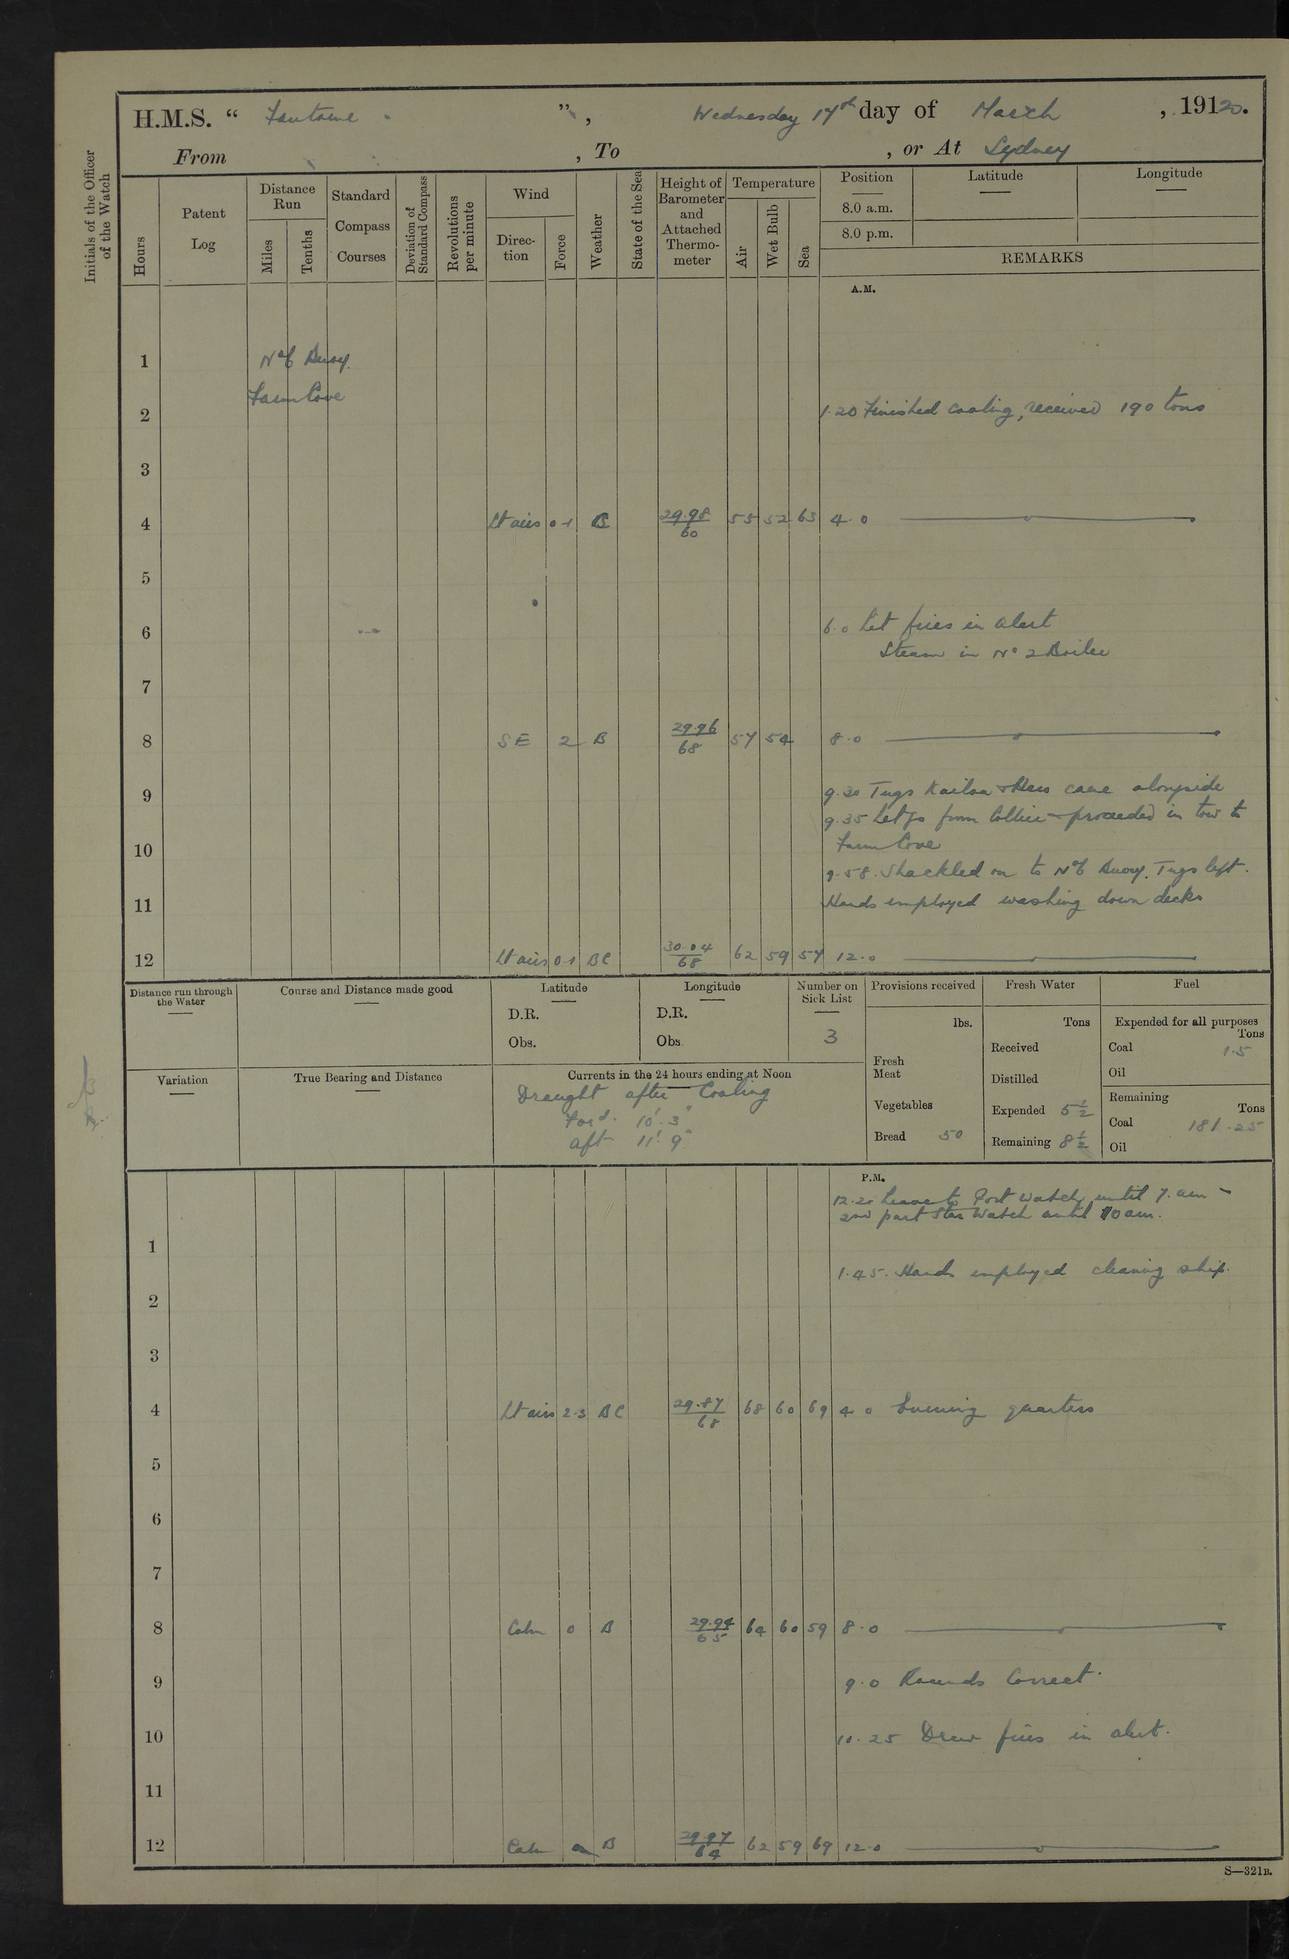 H.M.S. “ Fantome ”, Wednesday 17th day of March , 191 20.
From , To , or At Sydney
Initials of the Officer of the Watch
Hours
Patent Log
Distance Run
Miles
Tenths
Standard Compass Courses
Deviation of Standard Compass
Revolutions per minute
Wind
Direc-tion
Force
Weather
State of the Sea
Height of Barometer and Attached Thermo-meter
Temperature
Air
Wet Bulb
Sea
Position
8.0 a.m.
8.0 p.m.
Latitude
Longitude
REMARKS
A.M.
1 No 6 Buoy.
Farm Cove
2 1.20 Finished coaling, received 190 tons
3
4 Lt airs 0-1 B 29.98/60 55 52 63 4.0
5
6 6.0 Lit fires in alert
Steam in No 2 Boiler
7
8 SE 2 B 29.96/68 57 54 8.0
9 9.30 Tugs came alongside
9.35 Let go from Collier proceeded in tow to
10 Farm Cove
9.58. Shackled on to No 6 Buoy. Tugs left.
11 Hands employed washing down decks
12 Lt airs 0-1 BC 30.04/68 62 59 57 12.0
Distance run through the Water
Course and Distance made good
Latitude
D.R.
Obs.
Longitude
D.R.
Obs
Number on Sick List
3
Provisions received
lbs.
Fresh Meat
Vegetables
Bread 50
Fresh Water
Tons
Received
Distilled
Expended 5½
Remaining 8½
Fuel
Expended for all purposes
Tons
Coal 1.5
Oil
Remaining
Tons
Coal 181.25
Oil
Variation
True Bearing and Distance
Currents in the 24 hours ending at Noon
Draught after Coaling
For'd. 10' 3"
aft 11' 9"
P.M.
12.20 Leave to Port Watch until 7. am -
2nd part Star Watch until 10 am.
1
1.45. Hands employed cleaning ship.
2
3
4 Lt airs 2-3 BC 29.87/68 68 60 69 4.0 Evening quarters
5
6
7
8 Calm 0 B 29.94/65 64 60 59 8.0
9 9.0 Rounds Correct.
10 10.25 Drew fires in alert.
11
12 Calm 0 B 29.97/64 62 59 69 12.0
S—321B.